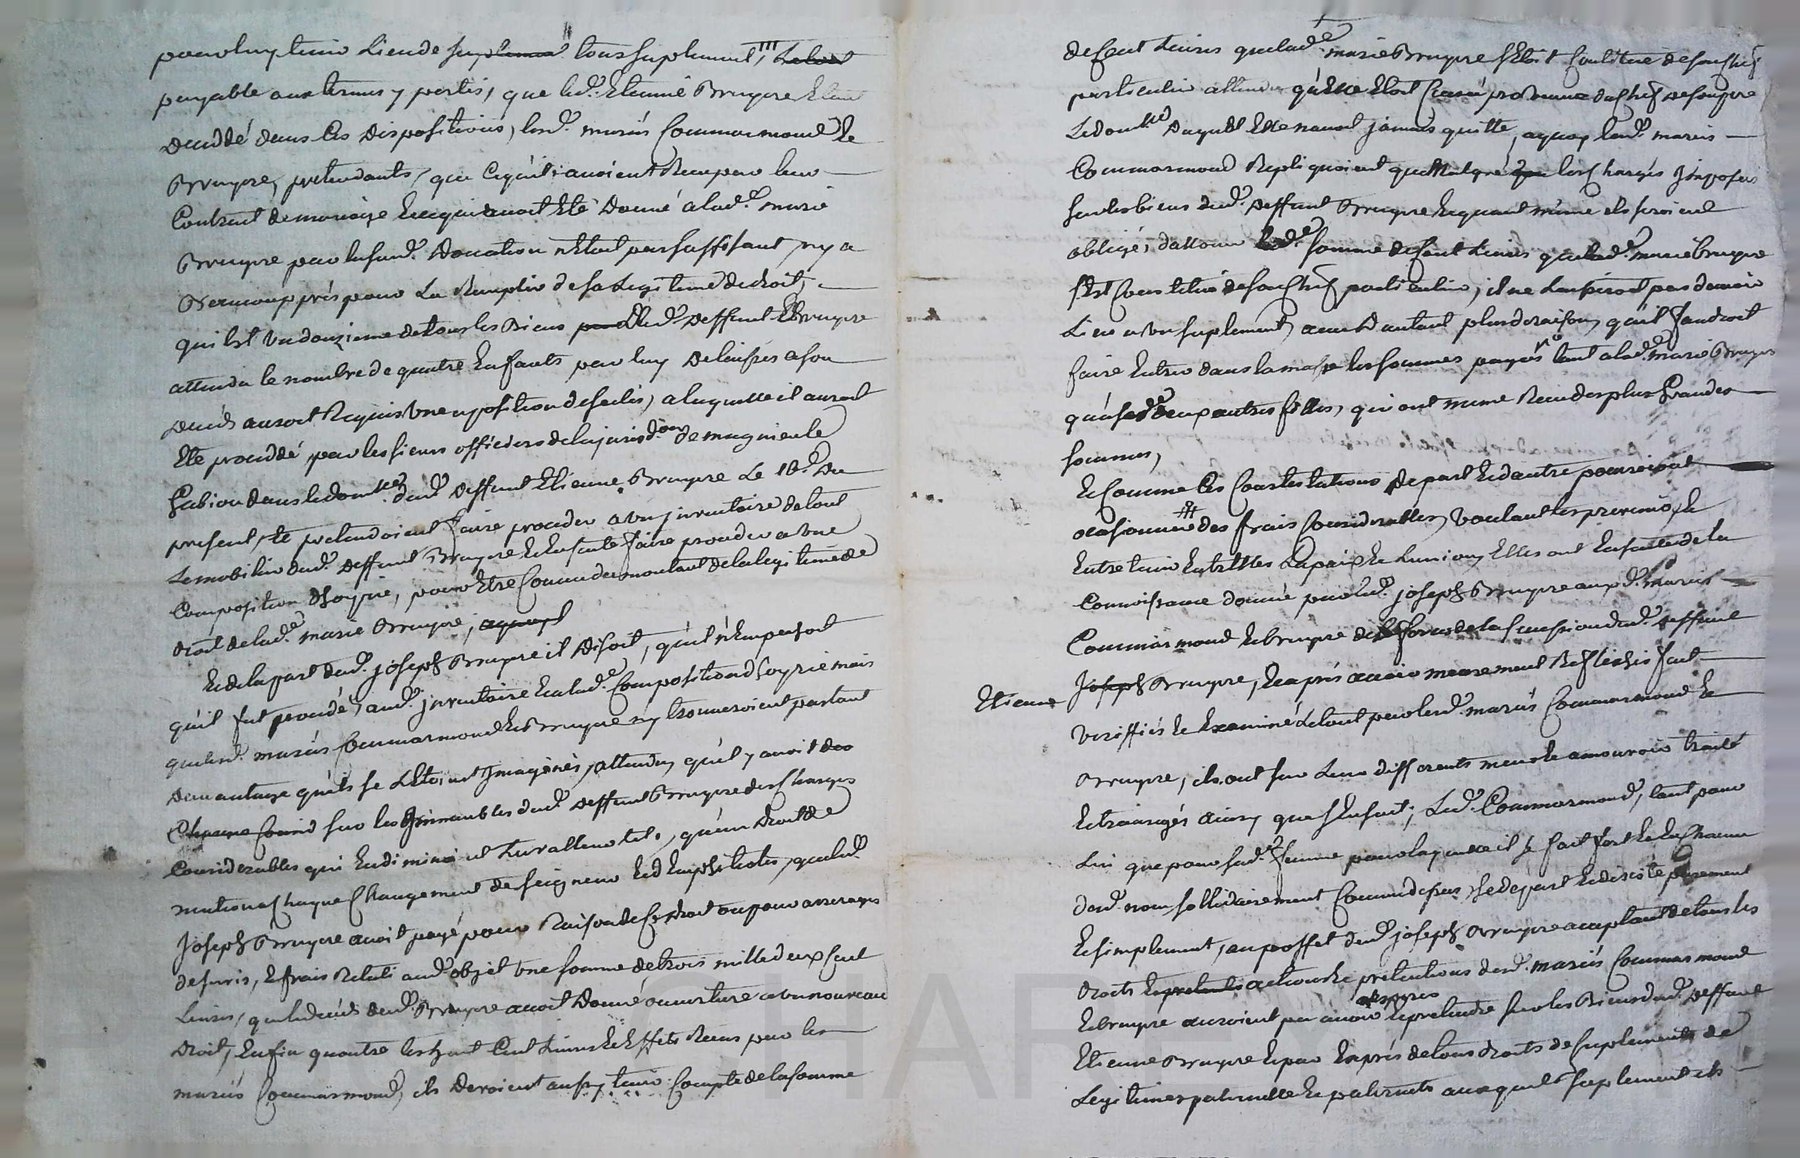 pour luy tenir Lieu de suplement tous suplement, Lelout
payable aux termes y portés, que led. Etienne Bruyere Etant
Décédé dans Ces Dispositions, lesd. mariés Commarmond Et
Bruyere, pretendants, que Ce qu'ils avoient Reçu par leur
Contract de mariage Et Ce qui avoit Eté Donné a lad.e marie
Bruyere par la susd. Donation n'Etoit pas suffisant ny a
Beaucoup près pour La Remplir de sa Legitime de droit,
qui Est un douzieme de tous les Biens dud. Deffunt Bruyere
attendu le nombre de quatre Enfants par luy Delaissés a son
Decès auroit Requis Une apposition de scellés, a laquelle il auroit
Eté procédé par les sieurs officiers de la jurisd.on de magnieu le
Gabion dans le domi.lle dud. Deffunt Etienne Bruyere Le 18.e Du
present, Et pretendoient faire proceder a un inventaire de tout
Le mobilier dud. Deffunt Bruyere Et Ensuite faire proceder a une
Composition d'hoyrie, pour Etre Connu du montant de la legitime de
droit de lad.e marie Bruyere,
Et de la part dud. joseph Bruyere il Disoit, qu'il n'Empechoit
qu'il fut procédé, aud. inventaire Et a lad.e Composition d'hoyrie mais
que lesd. mariés Commarmond Et Bruyere n'y trouveroient pas tant
D'avantage qu'ils se L'Etoient Imaginés, attendu qu'il y avoit des
sur les Immeubles dud. Deffunt Bruyere des Charges
Considerables qui En diminuent leur alleu tels, qu'un Droit de
mutation a Chaque Changement de seigneur Et d'Emphiteotes, que led.
Joseph Bruyere avoit payé pour Raison de Ce droit ou pour arrerages
de servis, Et frais Relatif aud. objet Une somme de trois mille deux Cent
Livres, que le decès dud. Bruyere avoit Donné ouverture a un nouveau
Droit, Enfin qu'outre les huit Cent Livres Et Effets Reçus par les
mariés Commarmond, ils Devoient aussy tenir Compte de la somme
de Cent Livres que lad.e marie Bruyere s'Etoit Constitué de son Chef
particulier attendu qu'Elle Etoit Censé provenue du Chef de son pere
Le domi.lle Duquel Elle n'avoit jamais quitté, a quoy lesd. mariés
Commarmond Repliquoient que Malgré les Charges Imposées
sur les biens dud. Deffunt Bruyere Et quand même ils seroient
obligés d'allouer lad.e somme de Cent Livres que lad.e marie Bruyere
s'Est Constitué de son Chef particulier, il ne Laisseroit pas d'avoir
Lieu a un suplement, avec D'autant plus de raison qu'il faudroit
faire Entrer dans la masse les sommes payés tant a lad.e marie Bruyere
qu'a ses deux autres filles, qui ont même Reçu des plus Grandes
sommes,
Et Comme Ces Contestations De part Et d'autre pourroient
ocasionner des frais Considerables, Voulant les prevenir, Et
Entretenir Entr'Elles La paix Et L'union, Elles ont Ensuite de la
Connoissance donné par led. joseph Bruyere auxd. mariés
Commarmond Et bruyere des forces de la succession dud. Deffunt
Joseph Bruyere, Et après avoir meurement Reflechis fait
Etienne
Veriffiés Et Examiné Le tout par lesd. mariés Commarmond Et
Bruyere, ils ont sur Leurs differents meus Et a mouvoir traité
Et transigés ainsy que s'Ensuit, Led. Commarmond, tant pour
Lui que pour sad.e femme pour laquelle il se fait fort Et En Chacun
desd. noms sollidairement Comme dessus, se depart Et desiste purement
Et simplement, au proffit dud. joseph Bruyere acceptant de tous les
droits Et pretends actions Et pretentions desd. mariés Commarmond
Et bruyere auroient pu avoir Et pretendre sur les Biens dud. Deffunt
Etienne Bruyere Et par Exprès de tous droits de suplement de
Legitimes paternelle Et paternels auxquels suplement ils